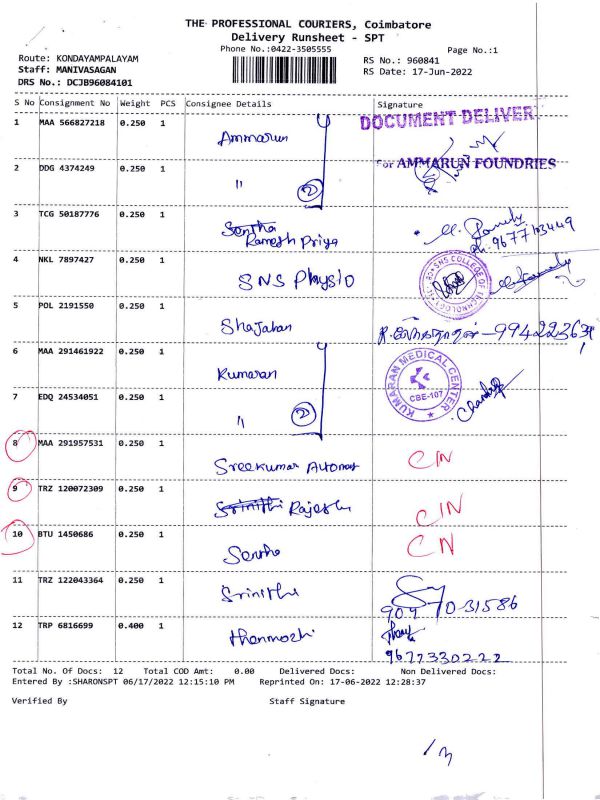 THE PROFESSIONAL COURIERS, Coimbatore
Delivery Runsheet - SPT
Phone No.:0422-3505555
Page No.:1
Route: KONDAYAMPALAYAM
RS No.: 960841
Staff: MANIVASAGAN
RS Date: 17-Jun-2022
DRS No.: DCJB96084101
S No Consignment No Weight PCS Consignee Details Signature
1 MAA 566827218 0.250 1 Ammarun DOCUMENT DELIVER
2 DDG 4374249 0.250 1 " 2 For AMMARUN FOUNDRIES
3 TCG 50187776 0.250 1 Sentha Ramesh Priya
ph: 9677103449
4 NKL 7897427 0.250 1 SNS Physio SNS COLLEGE OF TECHNOLOGY
5 POL 2191550 0.250 1 Shajahan
6 MAA 291461922 0.250 1 Kumaran KUMARAN MEDICAL CENTER CBE-107
7 EDQ 24534051 0.250 1 " 2
8 MAA 291957531 0.250 1 Sreekumar CIN
9 TRZ 120072309 0.250 1 Srinithi Rajesh CIN
10 BTU 1450686 0.250 1 Sentha CN
11 TRZ 122043364 0.250 1 Srinithi
12 TRP 6816699 0.400 1 thenmozhi
9677330222
Total No. Of Docs: 12 Total COD Amt: 0.00 Delivered Docs: Non Delivered Docs:
Entered By :SHARONSPT 06/17/2022 12:15:10 PM Reprinted On: 17-06-2022 12:28:37
Verified By Staff Signature